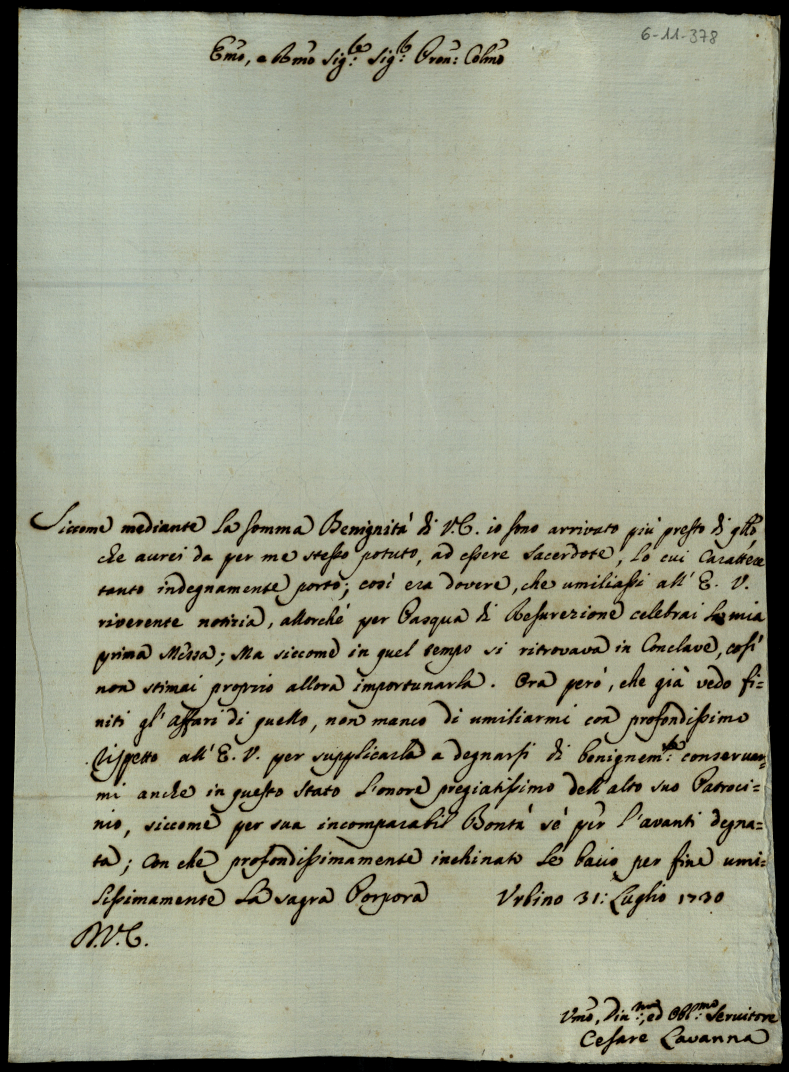 6-11-378
Emo, e Rmo Sig.re Sig.r Pron: Colmo
Siccome mediante la somma Benignità di V.E. io sono arrivato più presto di qllo
che aurei da per me stesso potuto, ad essere Sacerdote, lo cui Carattere
tanto indegnamente porto; così era dovere, che umiliassi all' E. V.
riverente notizia, allorché per Pasqua di Resurezione celebrai la mia
prima Messa; Ma siccome in quel tempo si ritrovava in Conclave, così
non stimai proprio allora importunarla. Ora però, che già vedo fi=
niti gl' affari di quello, non manco di umiliarmi con profondissimo
rispetto all' E. V. per supplicarla a degnarsi di benignem.te conservar=
mi anche in questo stato l'onore pregiatissimo dell'alto suo Patroci=
nio, siccome per sua incomparabil Bontà s'è per l'avanti degna=
ta; Con che profondissimamente inchinato le bacio per fine umi=
lissimamente la sagra Porpora Urbino 31: Luglio 1730
D.V.E.
Vmo, Diu.mo, ed Obl.mo Servitore
Cesare Lavanna